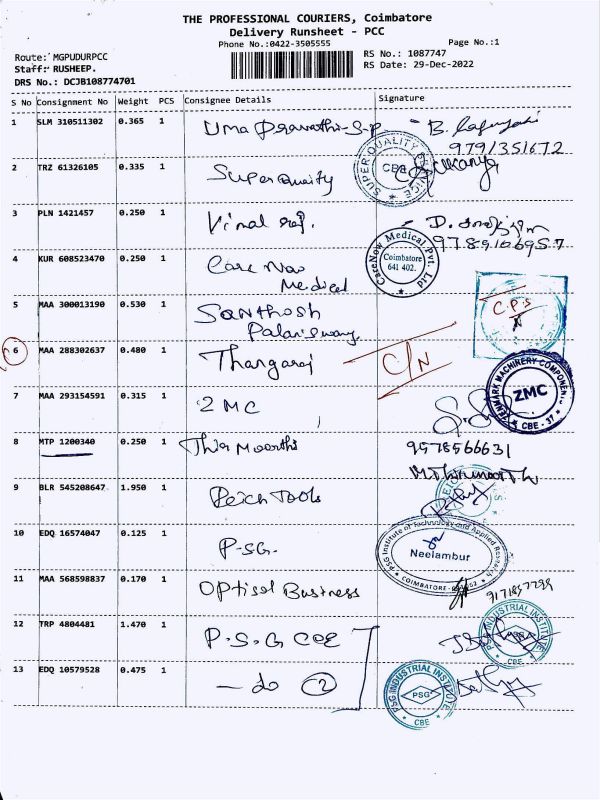 THE PROFESSIONAL COURIERS, Coimbatore
Delivery Runsheet - PCC
Phone No.:0422-3505555
Page No.:1
Route: MGPUDURPCC
RS No.: 1087747
Staff: RUSHEEP.
RS Date: 29-Dec-2022
DRS No.: DCJB108774701
S No Consignment No Weight PCS Consignee Details Signature
1 SLM 310511302 0.365 1 Uma
9791351672
2 TRZ 61326105 0.335 1 Super Quality
SUPER QUALITY SERVICE
CBE
3 PLN 1421457 0.250 1 Vimal raj.
9789106957
4 KUR 608523470 0.250 1 Care Now
Medical
CareNow Medical Pvt. Ltd
Coimbatore
641 402.
5 MAA 300013190 0.530 1 Santhosh
Palaniswamy
C.P.S
6 MAA 288302637 0.480 1 Thangaraj C/N
7 MAA 293154591 0.315 1 ZMC
ZENMARK MACHINERY COMPONENTS
ZMC
CBE - 37
8 MTP 1200340 0.250 1 Thia Moorthi 9578566631
9 BLR 545208647 1.950 1 Reich Tools
10 EDQ 16574047 0.125 1 P.SG.
PSG Institute of Technology and Applied Research
Neelambur
11 MAA 568598837 0.170 1 Optisol Business
12 TRP 4804481 1.470 1 P.S.G COE
PSG INDUSTRIAL INSTITUTE
PSG
CBE
13 EDQ 10579528 0.475 1 - do 2
PSG INDUSTRIAL INSTITUTE
PSG
CBE